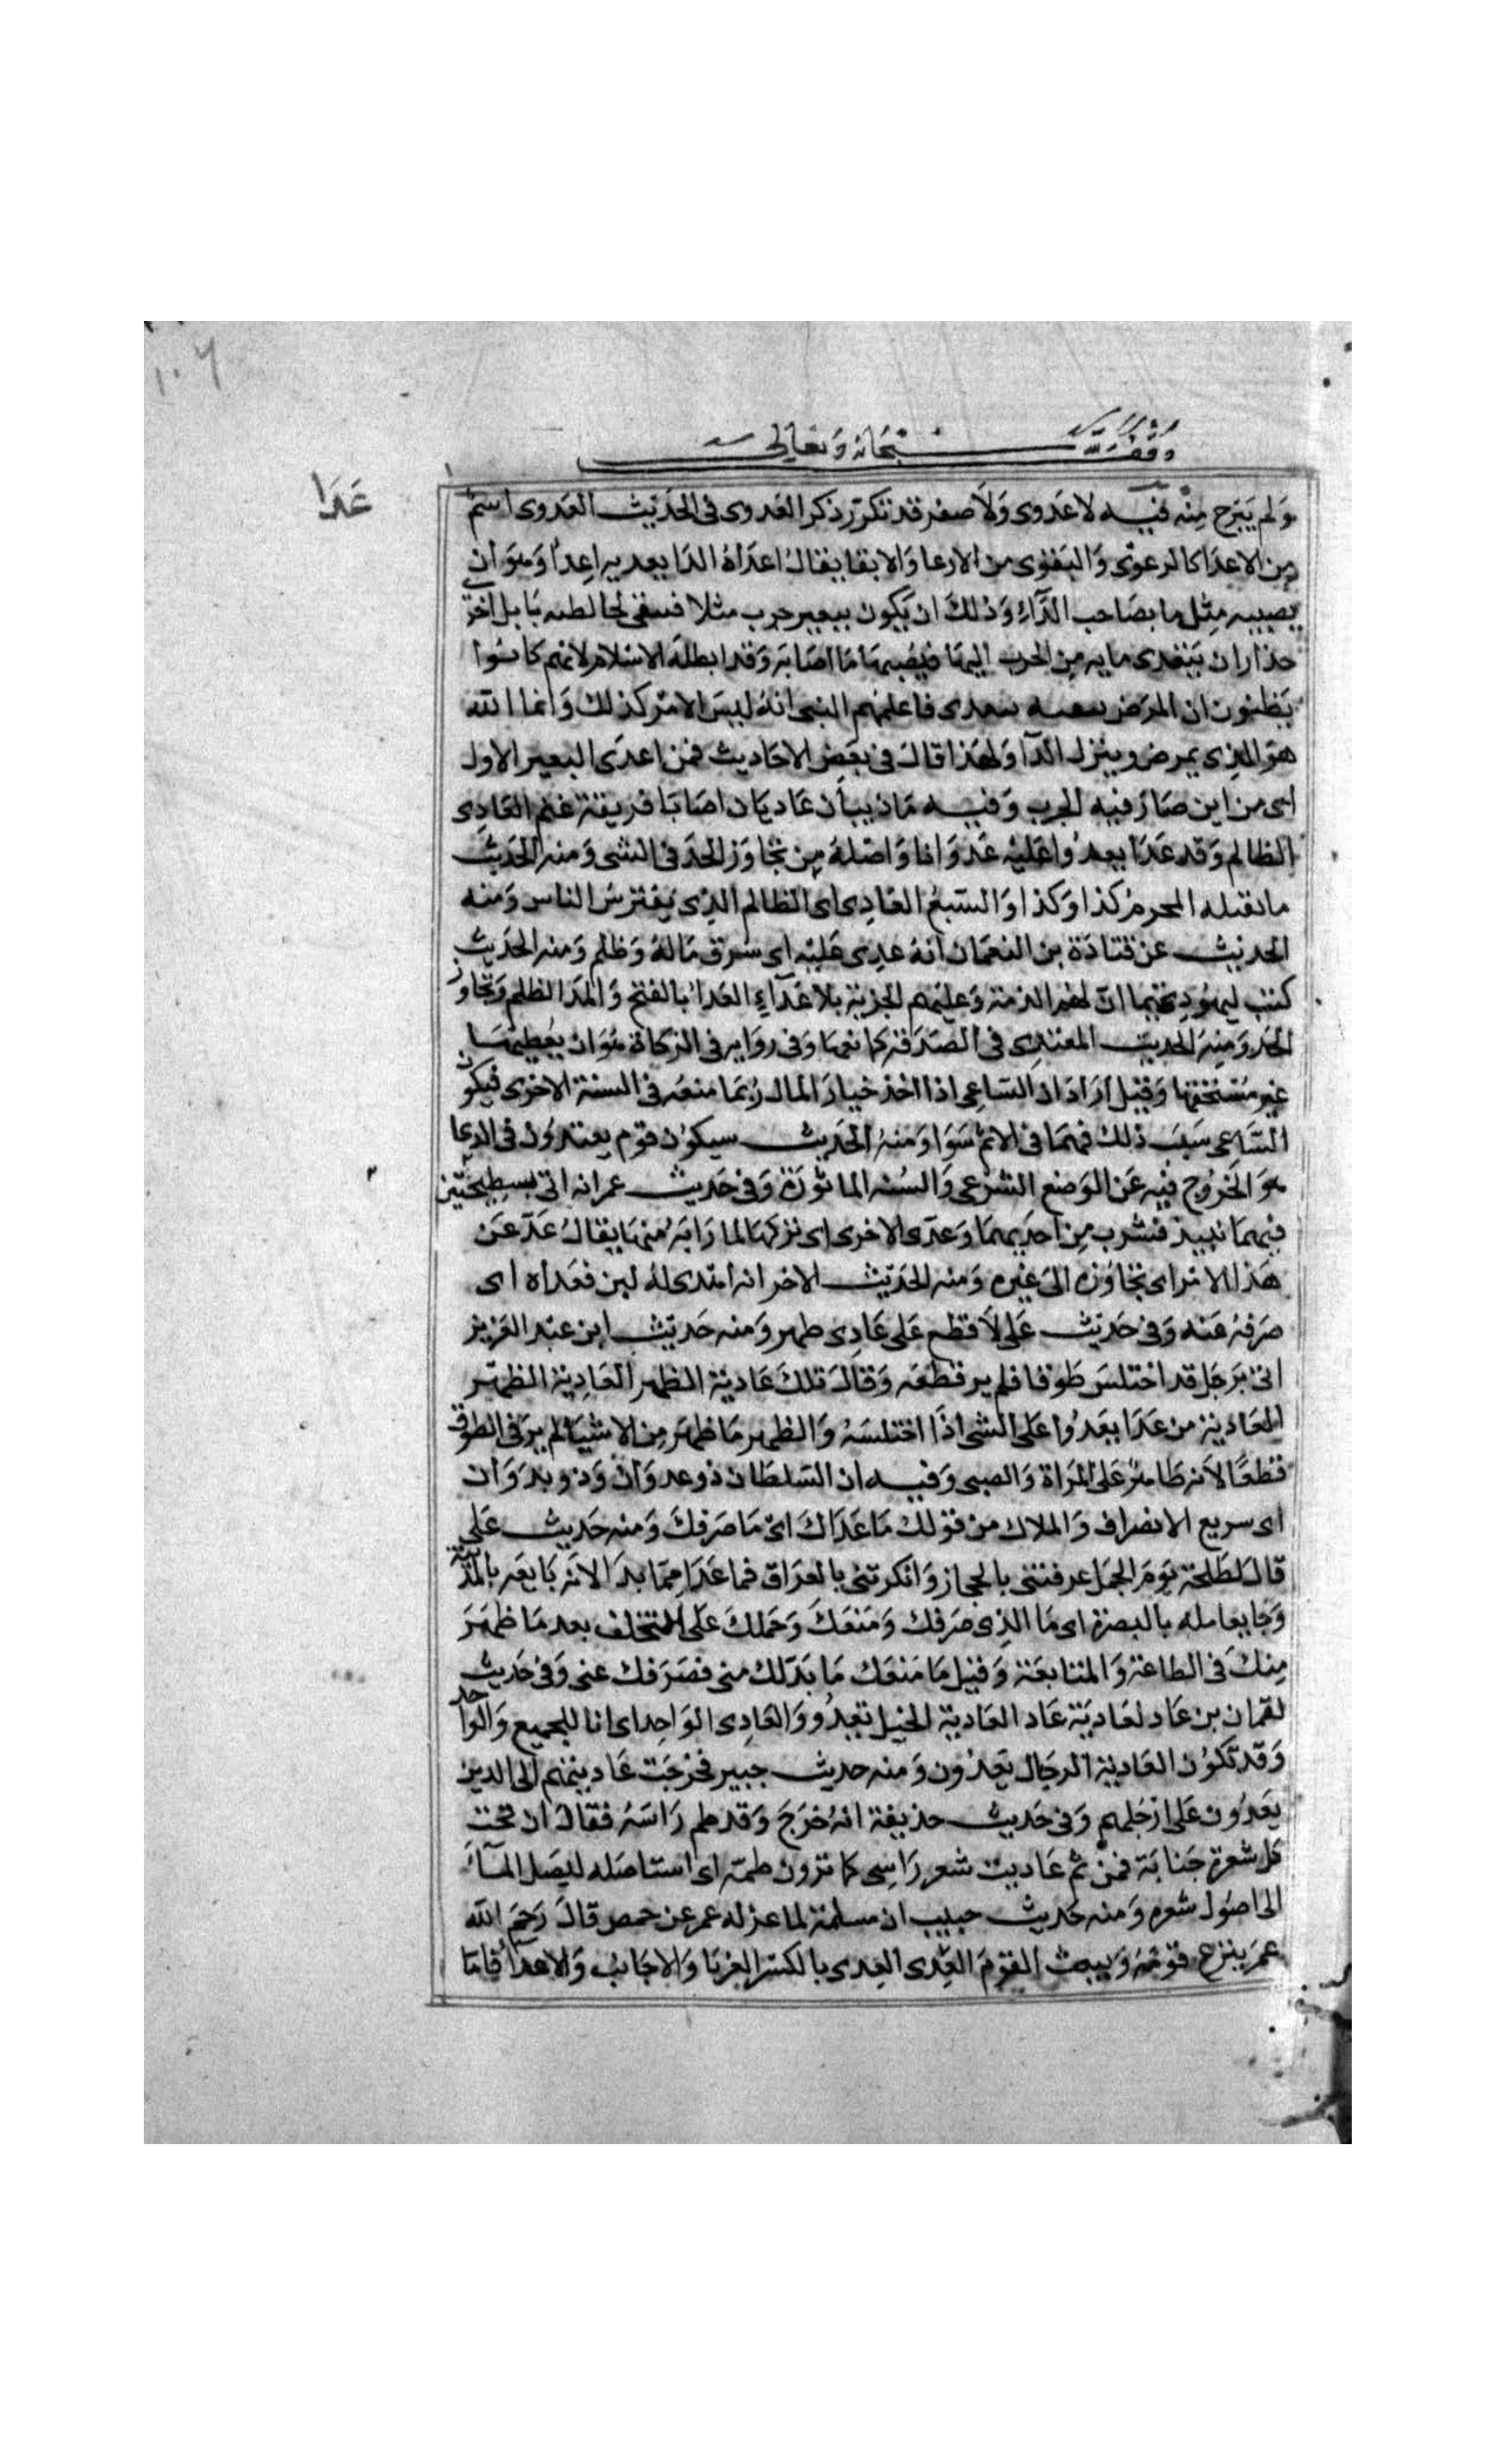 ١٠٦
وقف لله سبحانه وتعالى
عَدَا
وَلم يَبرح مِنْه فيه لاعَدوى وَلَا صفر قد تكرّر ذكر العَدوى فى الحَدِيث العَدوى اسم
مِن الاعدَا كالرعوَى وَالبَقوَى من الارعا وَالابقا يقالُ اعدَاهُ الدَا يعديه اعِدًا وَهوَ ان
يصيبه مِثل ما بصَاحب الدَّآءِ وَذلكَ ان يَكون ببعير جرب مثلا فيتقى مخالطته بَابل اخرى
حذار ان يَتعَدى ما به مِن الجرب اليهَا فيُصِبهَا مَا اصَابَه وَقد ابطلَه الاسْلام لانهم كَانُوا
يَظنون ان المرَض بنفسه يتعدى فاعلمهُم النبى انهُ ليسَ الامْر كذلك وَانما الله
هوَ الذِى يمرض وينزل الدآ وَلهذا قالَ فى بعَض الاحَاديث فمن اعدَى البعير الاول
اى من اين صَارَ فيه الجرب وَفيه مَا ذيبَان عَاديَان اصَابَا فريقة غنم العَادِى
الظالم وَقد عَدَا يعدُوا عَليْه عُدوَانا وَاصْلهُ مِن تجَاوَز الحَدّ فى الشى وَمنه الحَدِيث
ما يقتله المحرمُ كذا وَكذا وَالسَّبعُ العَادِى اى الظالم الذِى يَفترسُ الناس وَمنه
الحديث عن قتادَة بن النعمَان انهُ عدِى عَليْه اى سُرق مَالهُ وَظلم وَمنه الحَدِيث
كتب ليهُودِ تيما انّ لهمُ الذمة وَعليَهم الجزية بلا عَدآءٍ العَدآ بالفتح وَالمدّ الظلم وَتجاوز
الحَدّ وَمنِه الحديث المعتدِى فى الصَّدقة كمانعهَا وَفى روَايه فى الزكاة هُوَ ان يُعطِيهَا
غير مُسْتحقهَا وَقيل ارَادَ ان السّاعِى اذا اخذ خيارَ المال رُبمَا منعَه فى السنة الاخرى فيكون
السَّاعى سَببَ ذلك فهمَا فى الاثم سَوَا وَمنهُ الحَدِيث سيكوُن قوم يعتدوُن فى الدعا
هوَ الخرُوج فيْه عَن الوَضع الشرْعى وَالسُنه الماثوُرَة وَفى حَديث عمر انه اتى بسطِيحَتين
فيهمَا نبيذ فشرب مِن احدِيهمَا وَعدّى الاخرى اى تركهَا لما رَابَهُ منهَا يقالُ عَدّ عَن
هَذا الامْر اى تجَاوَزه الىَ غيره وَمنه الحَدِيث الاخر انه اهدى لهُ لبن فعَداه اى
صرَفهُ عَنه وَفى حَدِيث عَلى لَا قطع عَلى عَادِى ظهر وَمنه حَديث ابن عبْد العَزيز
اتىَ برَجل قد اختلسَ طَوقا فلم ير قطعَه وَقالَ تلكَ عَاديَة الظهر العَادِيَة الظهر
العَاديَة من عَدَا يعَدُوا عَلى الشى اذَا اختلسَهُ وَالظهر مَا ظهَر مِن الاشيَا لم يرَ فى الطوق
قطعًا لاَنه ظَاهرٌ عَلى المَراة وَالصبى وَفيه ان السّلطان ذو عدوَان وَذو بدَوَان
اى سريع الانصراف وَالملاك من قولك مَا عَدَاكَ اىْ مَا صَرَفكَ وَمنه حَديث عَلى
قالَ لطَلحَة يَومَ الجمَل عرفتنى بالحجاز وَانكرتنى بالعرَاق فما عَدَا ممّا بدَا لانه بَايعَه بالمدينة
وَجا يقَاتله بالبصرَة اى مَا الذِى صَرفك وَمَنعَكَ وَحَملكَ عَلى التخلف بعد مَا ظهَرَ
مِنكَ فى الطاعَة وَالمتابعَة وَقيل مَا مَنعَك مَا بَدَا لك منى فصَرَفك عنى وَفى حَديث
لقمان بن عَاد لعَاديَة عَاد العَادية الخيل تعدُو وَالعَادِى الوَاحِد اى انا للجميع وَالوَاحد
وَقد تكوُن العَاديَة الرجَال يَعدُون وَمنه حديث جبير فخرَجَت عَاديتهم اى الذين
يَعدُون عَلى ارْجُلهم وَفى حَديث حذيفة انهُ خرَجَ وَقد طم رَاسَهُ فقالَ ان تحت
كل شعرة جنابَة فمنْ ثم عَاديت شعر رَاسِى كما تروْن طمّه اى استاصَله ليصَل المآءَ
الى اصوَل شعره وَمنه حَديث حبيب ان مسلمة لما عزله عمر عن حمص قالَ رَحمَ الله
عمرَ ينزع قومَهُ وَيبعث القوْمَ العِدَى العِدى بالكسْر الغربَا وَالاجَانبُ وَالاعدآ فامّا